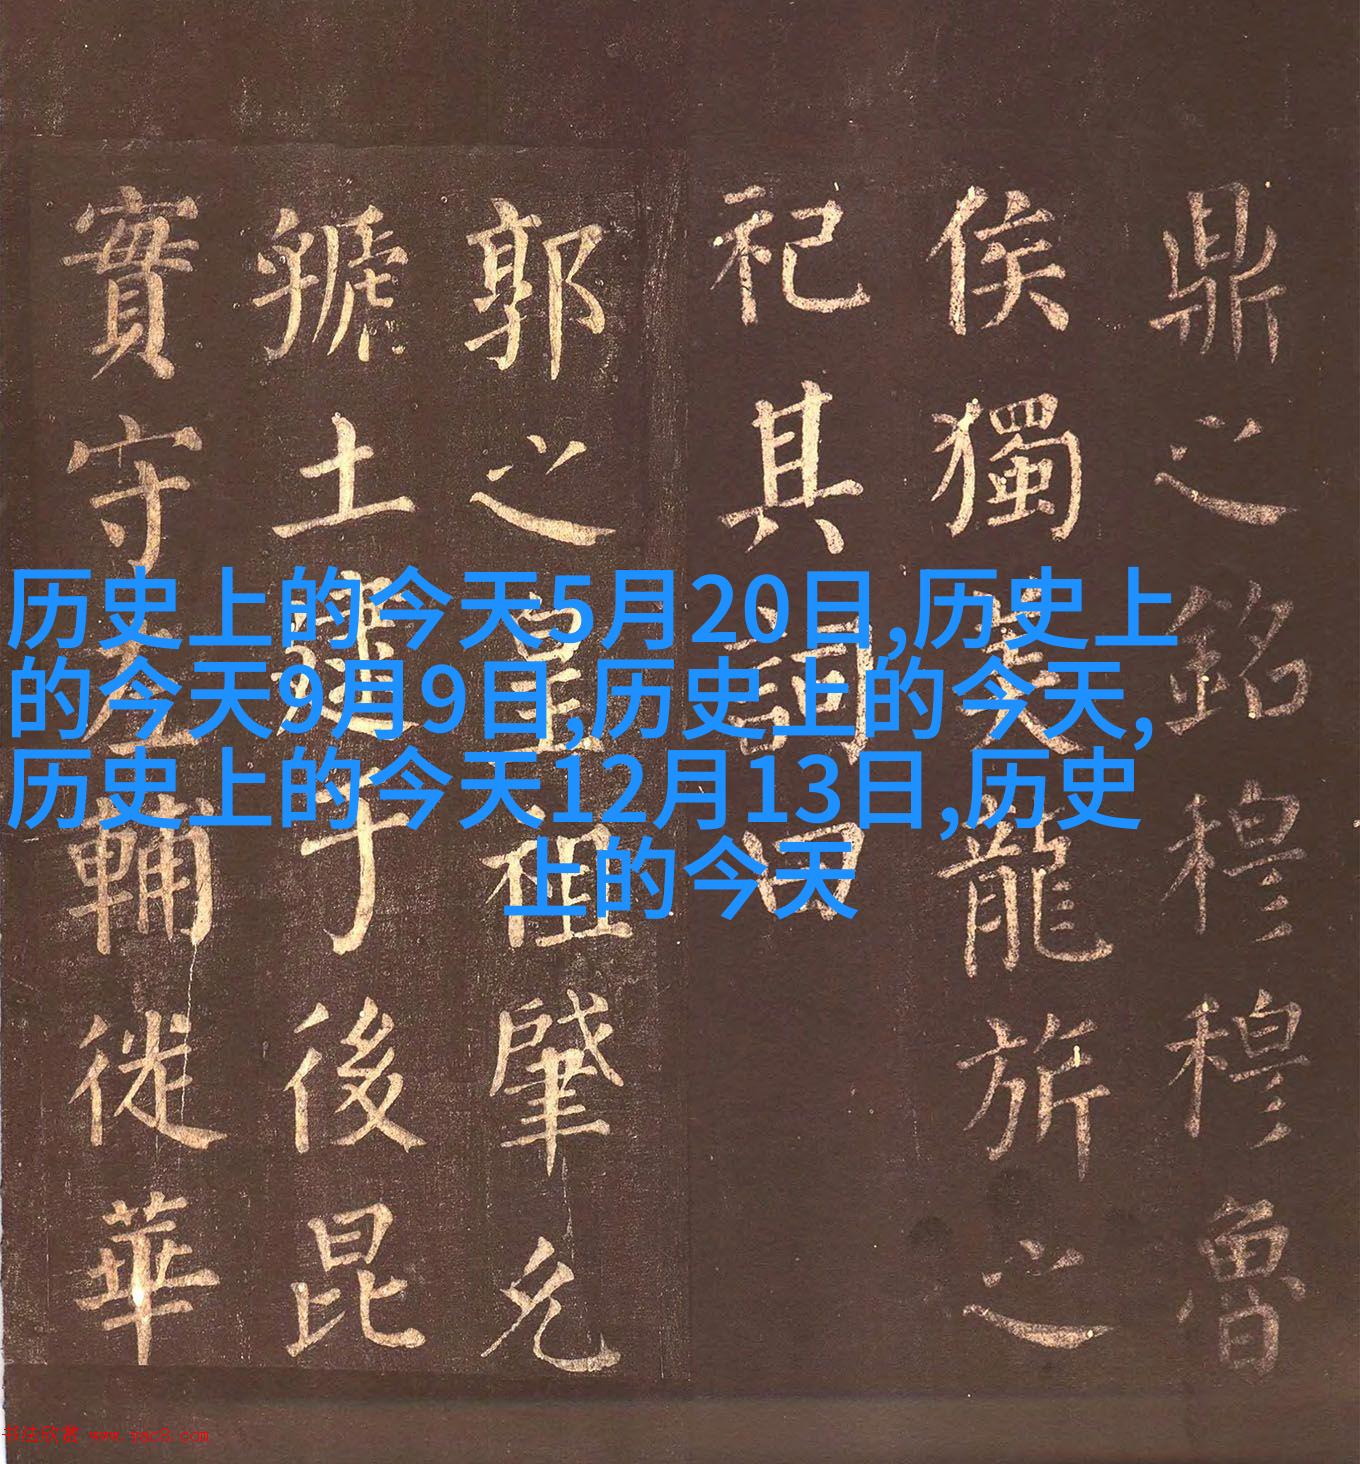 鼎之銘穆穆魯
侯獨美龍旂之
祀其詞曰
郭之皇祖肇允
虢土于後昆
實守左輔徙華
历史上的今天5月20日,历史上
的今天9月9日,历史上的今天,
历史上的今天12月13日,历史
上的今天
书法欣赏 www.yac8.com